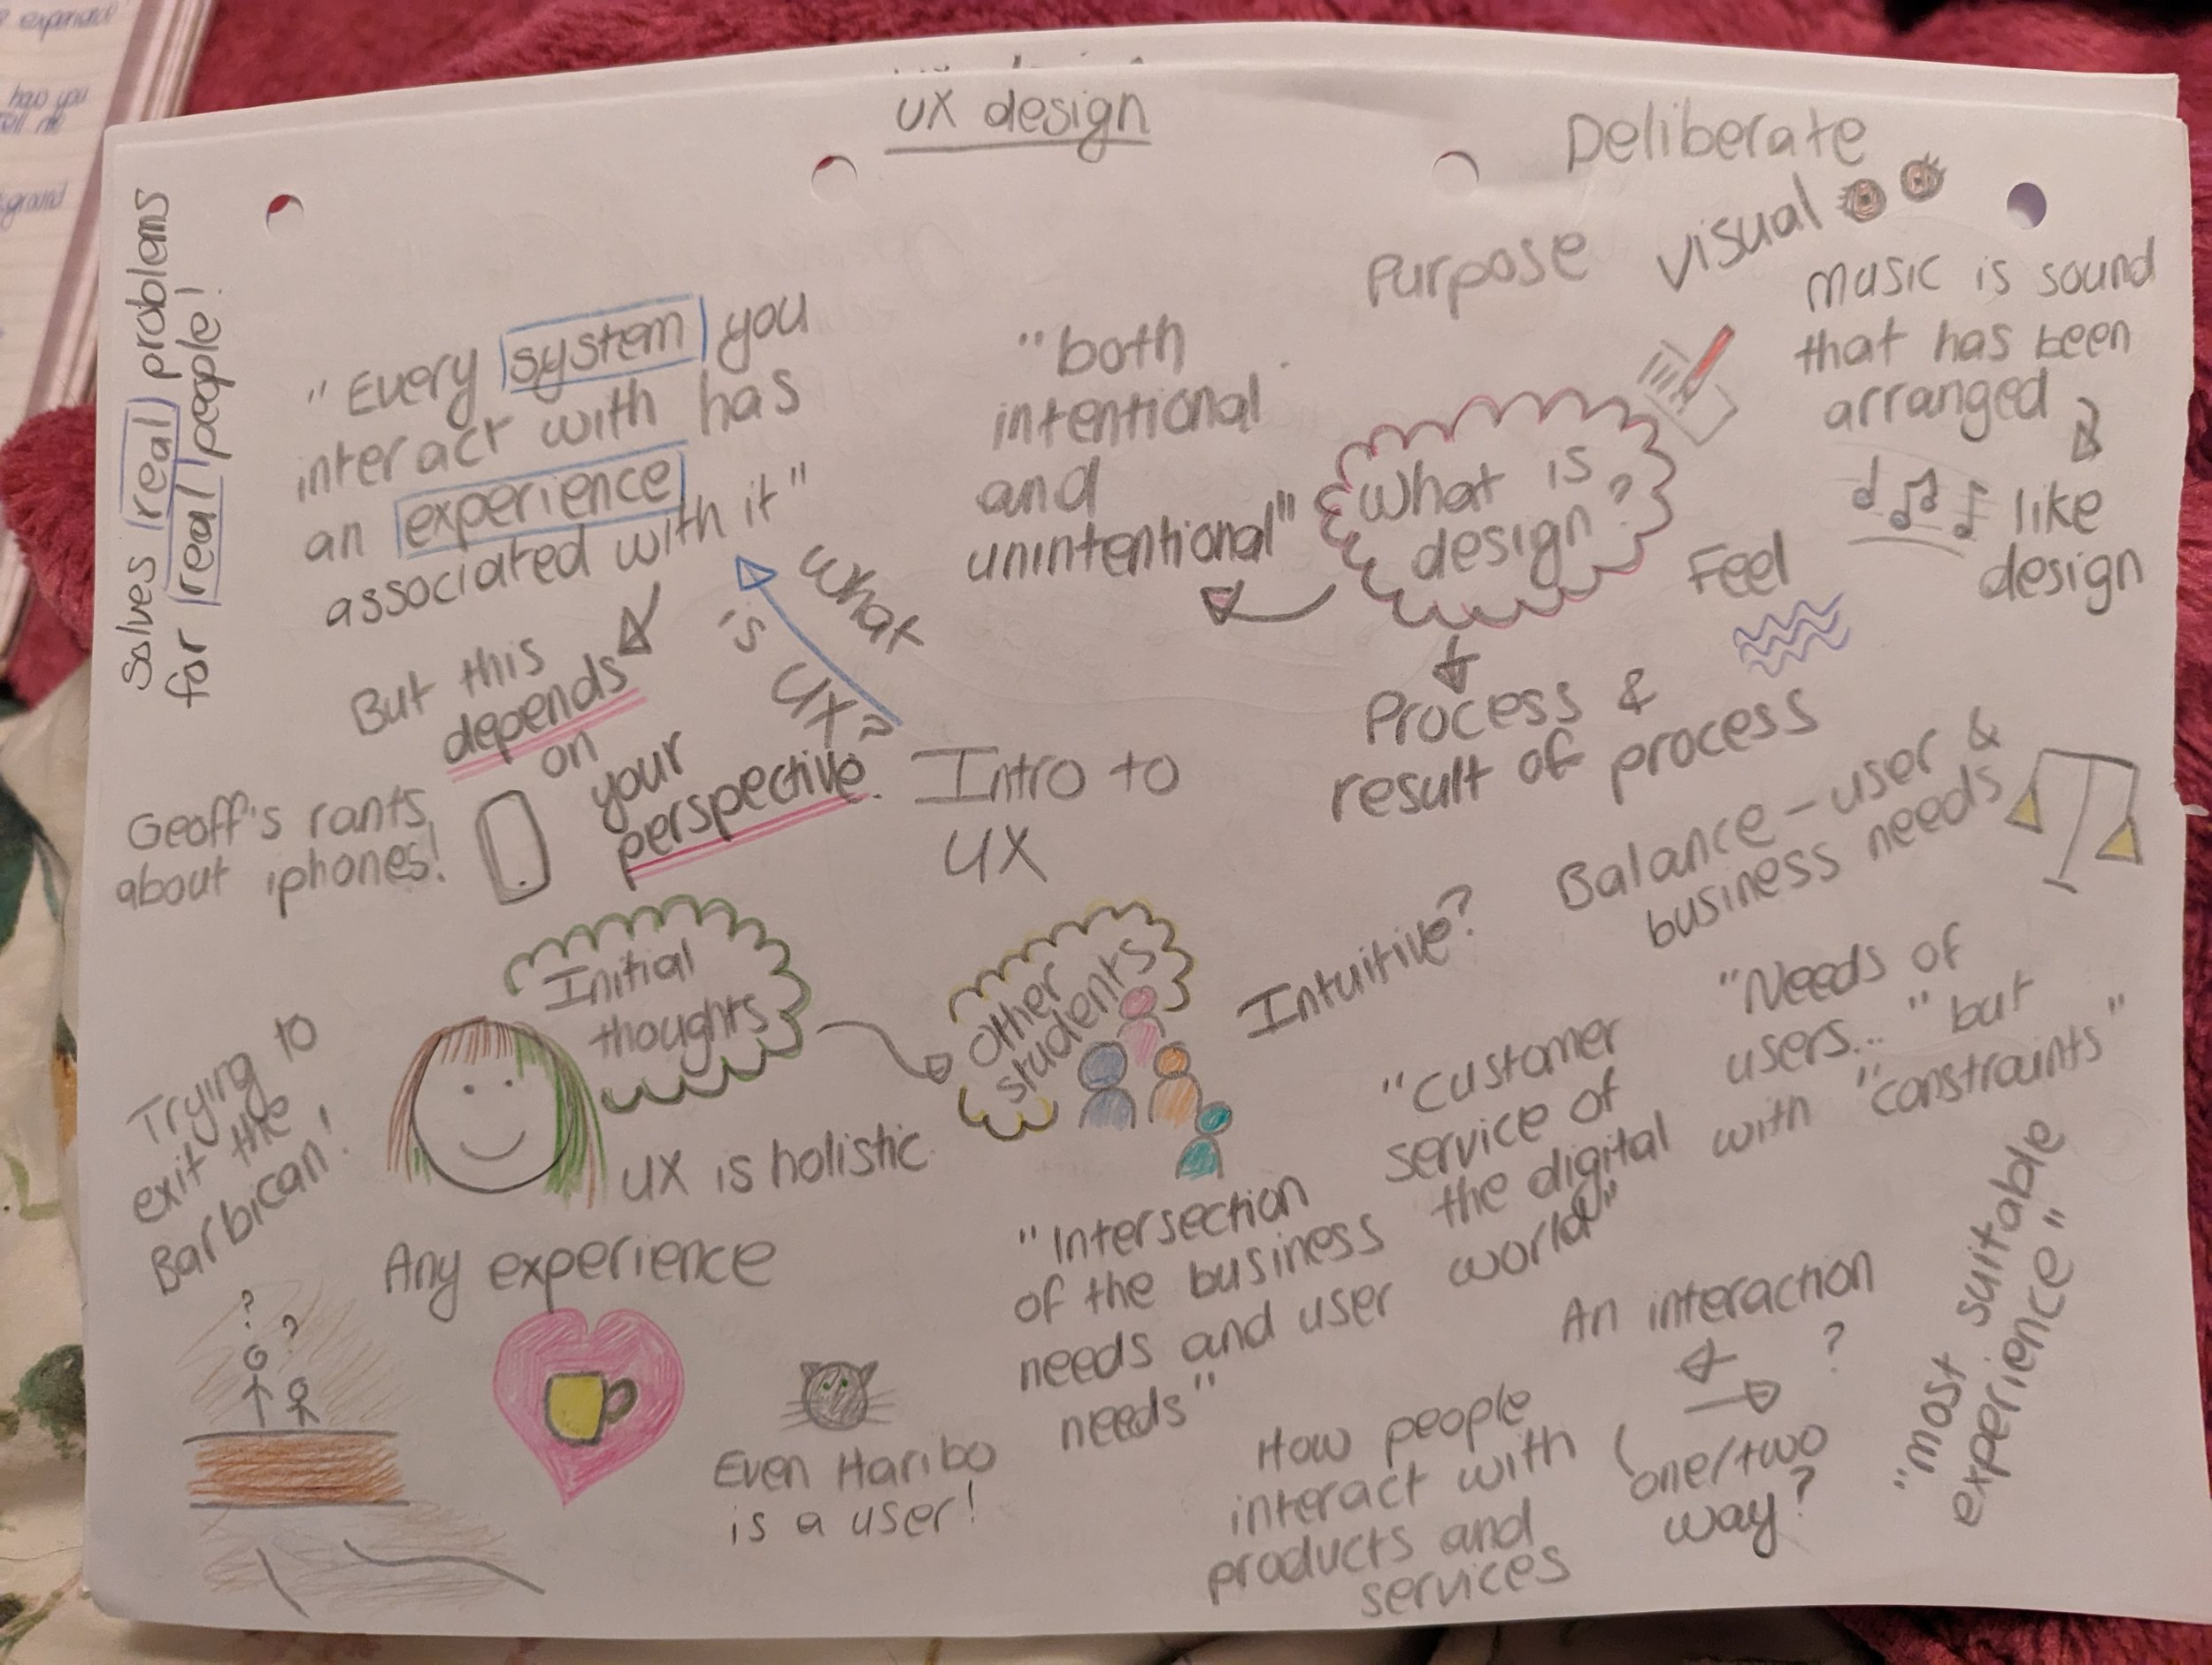 UX design
Solves real problems
for real people!
"Every system you
interact with has
an experience
associated with it"
But this
depends
on
your
perspective.
Geoff's rants
about iphones!
What
is
UX?
Intro to
UX
"both
intentional
and
unintentional"
What is
design?
Deliberate
Purpose
Visual
Music is sound
that has been
arranged
like
design
Feel
Process &
result of process
Initial
thoughts
Other
students
Trying to
exit the
Barbican!
? ?
UX is holistic
Any experience
Even Haribo
is a user!
Intuitive?
Balance - user &
business needs
"Needs of
users..." but
with "constraints"
"Customer
service of
the digital
world"
"Intersection
of the business
needs and user
needs"
An interaction
?
(one/two
way?
How people
interact with
products and
services
"most suitable
experience"
experience
how you